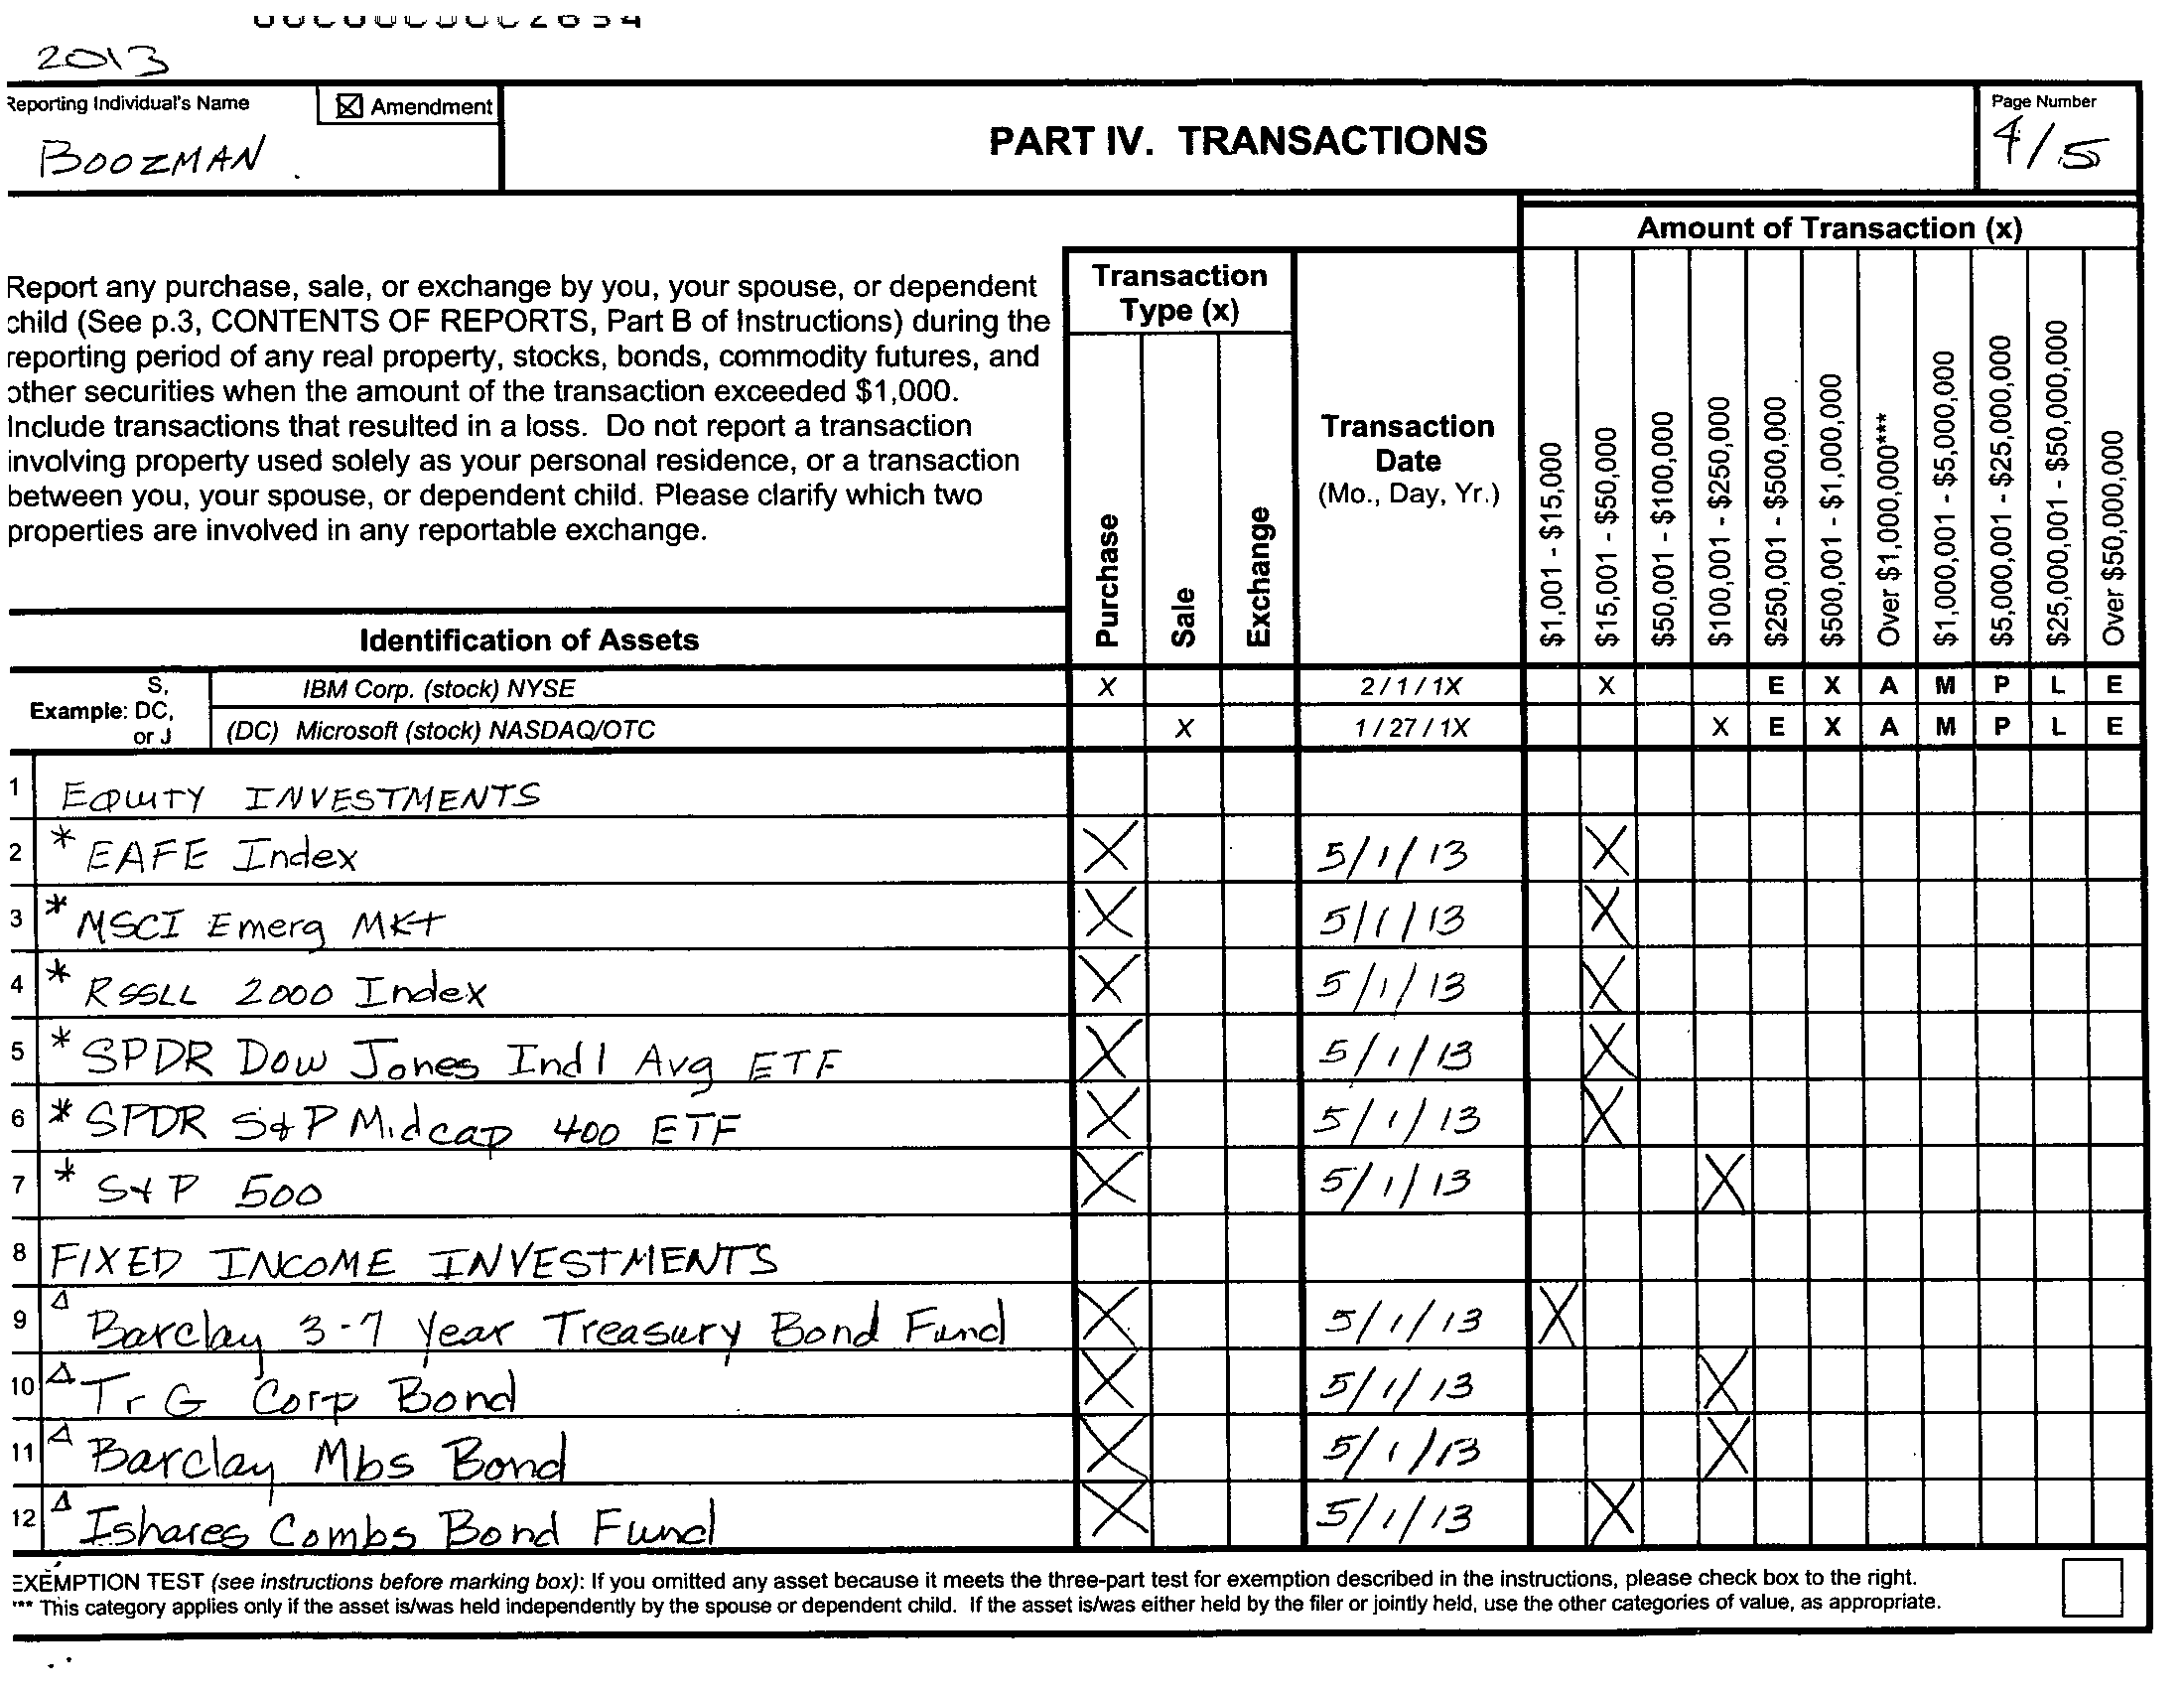 2013
Reporting Individual's Name
☒ Amendment
BOOZMAN
PART IV. TRANSACTIONS
Page Number
4/5
Report any purchase, sale, or exchange by you, your spouse, or dependent
child (See p.3, CONTENTS OF REPORTS, Part B of Instructions) during the
reporting period of any real property, stocks, bonds, commodity futures, and
other securities when the amount of the transaction exceeded $1,000.
Include transactions that resulted in a loss. Do not report a transaction
involving property used solely as your personal residence, or a transaction
between you, your spouse, or dependent child. Please clarify which two
properties are involved in any reportable exchange.
Identification of Assets
Transaction
Type (x)
Purchase
Sale
Exchange
Transaction
Date
(Mo., Day, Yr.)
Amount of Transaction (x)
$1,001 - $15,000
$15,001 - $50,000
$50,001 - $100,000
$100,001 - $250,000
$250,001 - $500,000
$500,001 - $1,000,000
Over $1,000,000***
$1,000,001 - $5,000,000
$5,000,001 - $25,000,000
$25,000,001 - $50,000,000
Over $50,000,000
Example: S, DC, or J
IBM Corp. (stock) NYSE X 2 / 1 / 1X X E X A M P L E
(DC) Microsoft (stock) NASDAQ/OTC X 1 / 27 / 1X X E X A M P L E
1 EQUITY INVESTMENTS
2 * EAFE Index X 5/1/13 X
3 * MSCI Emerg MKt X 5/1/13 X
4 * RSSLL 2000 Index X 5/1/13 X
5 * SPDR Dow Jones Indl Avg ETF X 5/1/13 X
6 * SPDR S&P Midcap 400 ETF X 5/1/13 X
7 * S&P 500 X 5/1/13 X
8 FIXED INCOME INVESTMENTS
9 Δ Barclay 3-7 Year Treasury Bond Fund X 5/1/13 X
10 Δ Tr G Corp Bond X 5/1/13 X
11 Δ Barclay Mbs Bond X 5/1/13 X
12 Δ Ishares Combs Bond Fund X 5/1/13 X
EXEMPTION TEST (see instructions before marking box): If you omitted any asset because it meets the three-part test for exemption described in the instructions, please check box to the right.
*** This category applies only if the asset is/was held independently by the spouse or dependent child. If the asset is/was either held by the filer or jointly held, use the other categories of value, as appropriate.